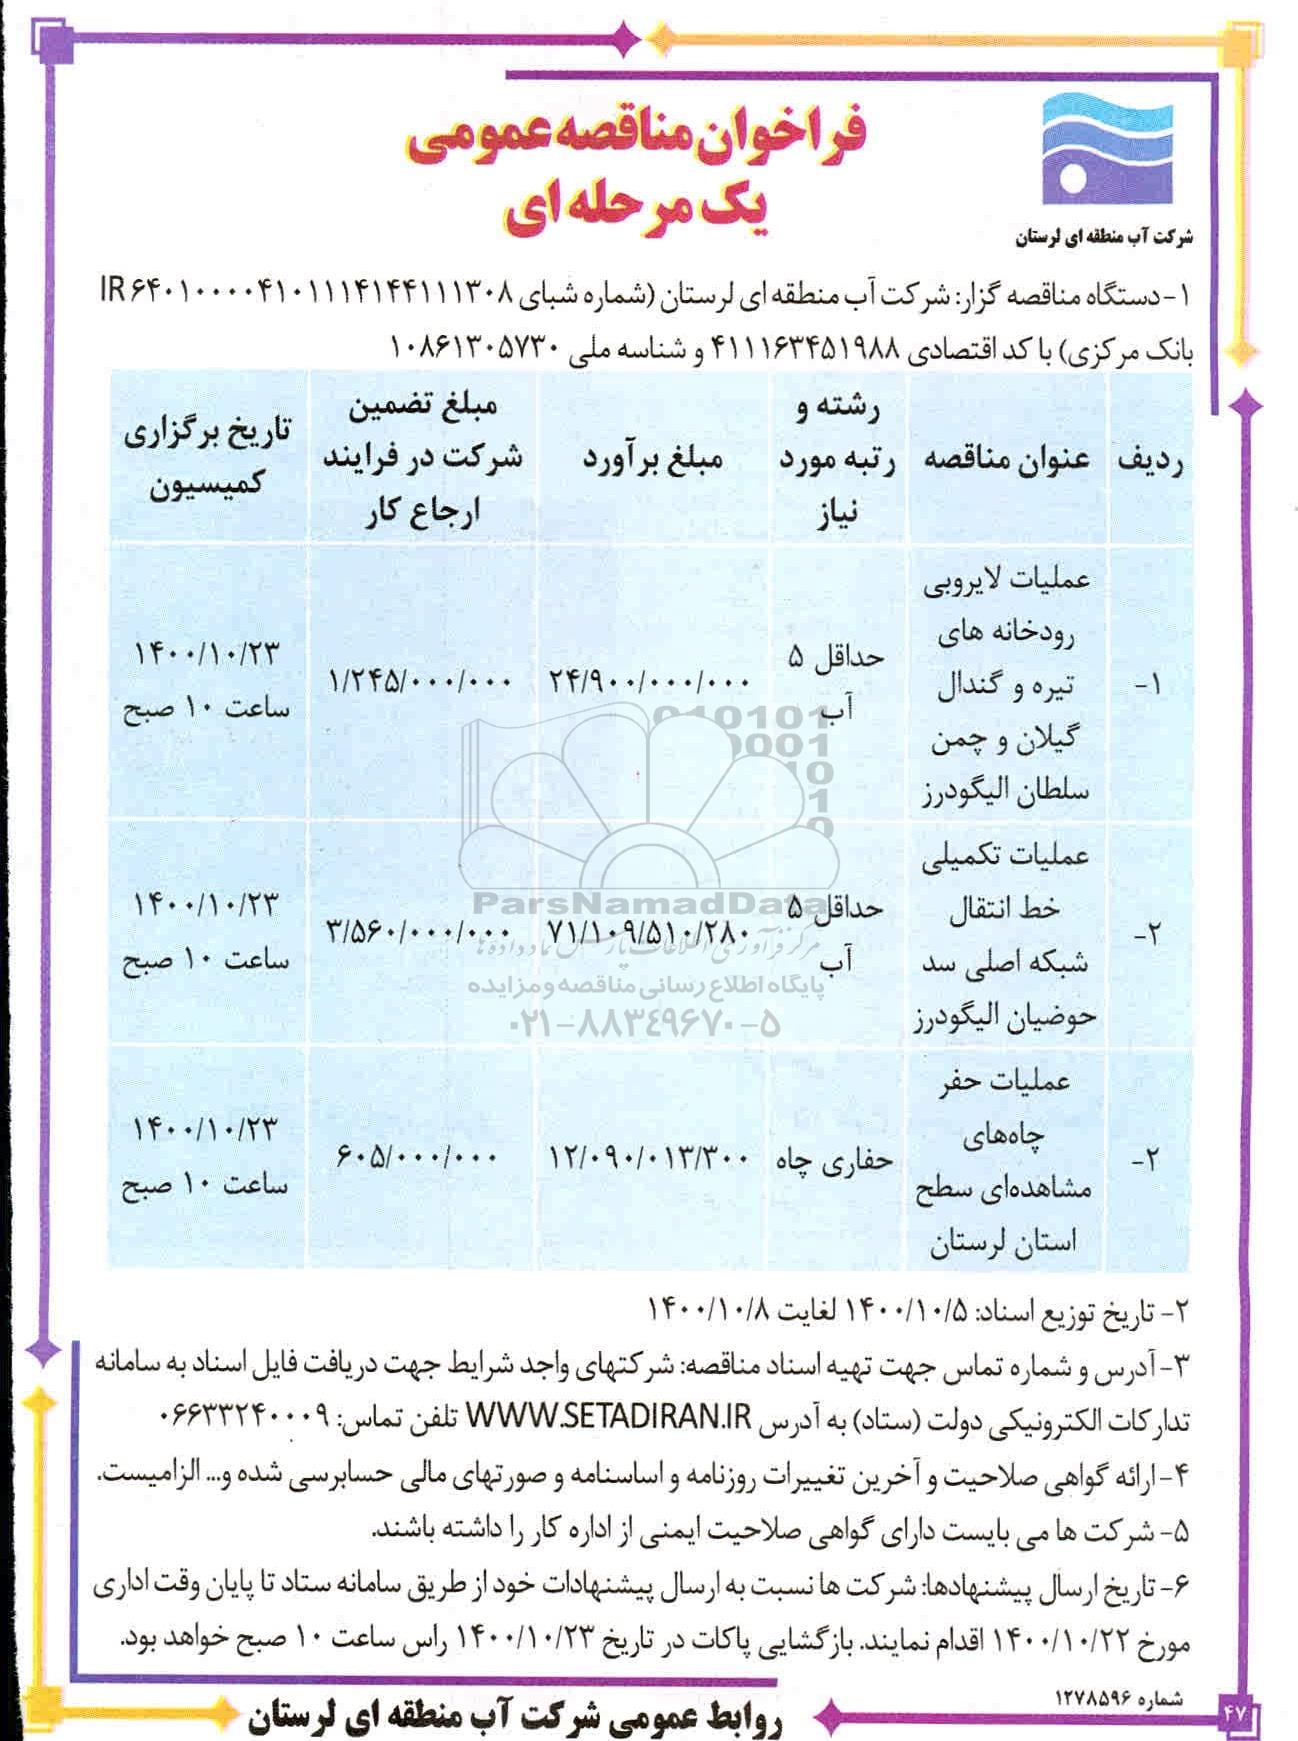 فراخوان مناقصه عمومی
یک مرحله ای
شرکت آب منطقه ای لرستان
۱-دستگاه مناقصه گزار: شرکت آب منطقه ای لرستان (شماره شبای IR ۶۴۰۱۰۰۰۰۴۱۰۱۱۱۴۱۴۴۱۱۱۳۰۸
بانک مرکزی) با کد اقتصادی ۴۱۱۱۶۳۴۵۱۹۸۸ و شناسه ملی ۱۰۸۶۱۳۰۵۷۳۰
ردیف
عنوان مناقصه
رشته و
رتبه مورد
نیاز
مبلغ برآورد
مبلغ تضمین
شرکت در فرایند
ارجاع کار
تاریخ برگزاری
کمیسیون
۱-
عملیات لایروبی
رودخانه های
تیره و گندال
گیلان و چمن
سلطان الیگودرز
حداقل ۵
آب
۲۴/۹۰۰/۰۰۰/۰۰۰
۱/۲۴۵/۰۰۰/۰۰۰
۱۴۰۰/۱۰/۲۳
ساعت ۱۰ صبح
۲-
عملیات تکمیلی
خط انتقال
شبکه اصلی سد
حوضیان الیگودرز
حداقل ۵
آب
۷۱/۱۰۹/۵۱۰/۲۸۰
۳/۵۶۰/۰۰۰/۰۰۰
۱۴۰۰/۱۰/۲۳
ساعت ۱۰ صبح
۲-
عملیات حفر
چاه‌های
مشاهده‌ای سطح
استان لرستان
حفاری چاه
۱۲/۰۹۰/۰۱۳/۳۰۰
۶۰۵/۰۰۰/۰۰۰
۱۴۰۰/۱۰/۲۳
ساعت ۱۰ صبح
ParsNamadData
مرکز فرآوری اطلاعات پارس نماد داده‌ها
پایگاه اطلاع رسانی مناقصه و مزایده
۰۲۱-۸۸۳۴۹۶۷۰-۵
۲- تاریخ توزیع اسناد: ۱۴۰۰/۱۰/۵ لغایت ۱۴۰۰/۱۰/۸
۳-آدرس و شماره تماس جهت تهیه اسناد مناقصه: شرکتهای واجد شرایط جهت دریافت فایل اسناد به سامانه
تدارکات الکترونیکی دولت (ستاد) به آدرس WWW.SETADIRAN.IR تلفن تماس: ۰۶۶۳۳۲۴۰۰۰۹
۴-ارائه گواهی صلاحیت و آخرین تغییرات روزنامه و اساسنامه و صورتهای مالی حسابرسی شده و... الزامیست.
۵- شرکت ها می بایست دارای گواهی صلاحیت ایمنی از اداره کار را داشته باشند.
۶- تاریخ ارسال پیشنهادها: شرکت ها نسبت به ارسال پیشنهادات خود از طریق سامانه ستاد تا پایان وقت اداری
مورخ ۱۴۰۰/۱۰/۲۲ اقدام نمایند. بازگشایی پاکات در تاریخ ۱۴۰۰/۱۰/۲۳ راس ساعت ۱۰ صبح خواهد بود.
شماره ۱۲۷۸۵۹۶
روابط عمومی شرکت آب منطقه ای لرستان
۴۷